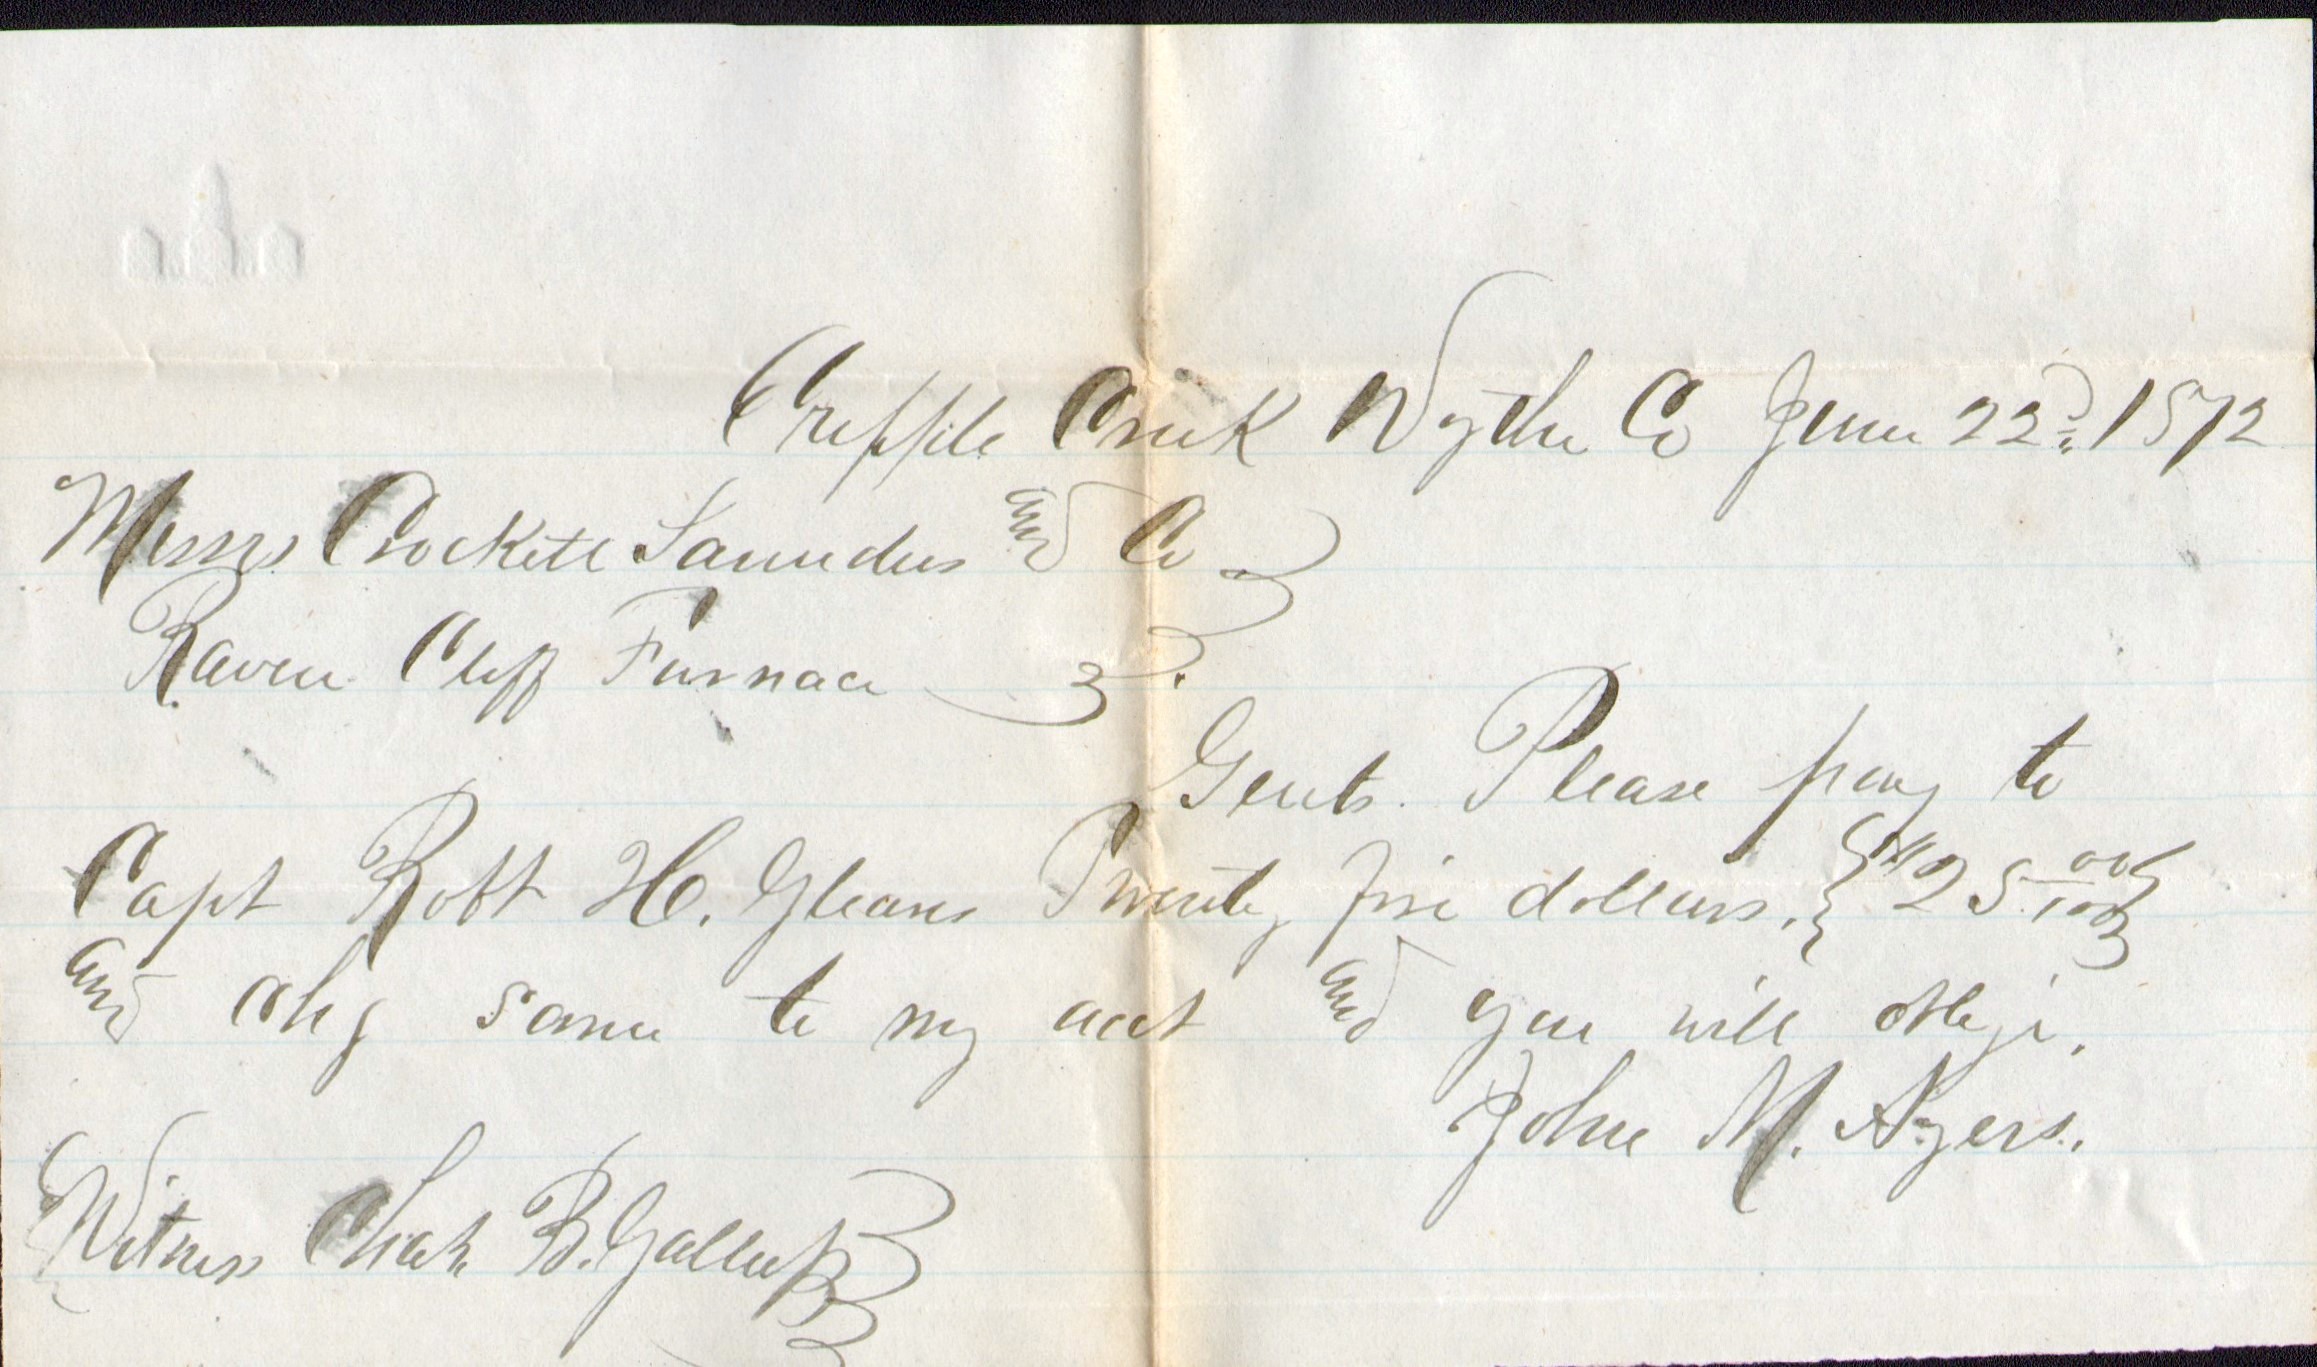 Cripple Creek Wythe Co June 22nd 1872
Messrs Crockett Saunders and Co
Raven Cliff Furnace
Gents. Please pay to
Capt Robt H. Gleaves Twenty five dollars. {$25 00/100}
and chg same to my acct and you will oblige.
John M. Ayers.
Witness Chas. B. Gallup